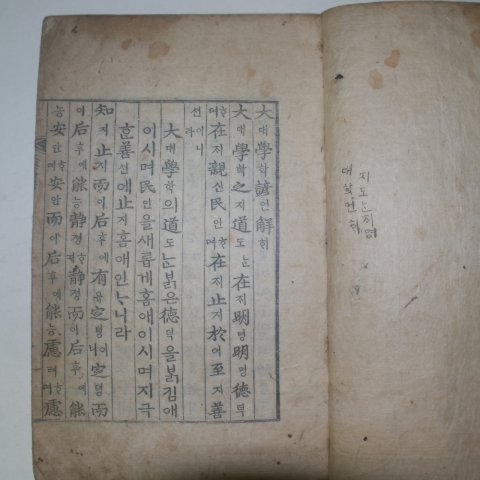 大대學학諺언解ᄒᆡ
大대學학之지道도ᄂᆞᆫ在ᄌᆡ明명明명德덕
ᄒᆞ며在ᄌᆡ親신民민ᄒᆞ며在ᄌᆡ止지於어至지善
션이니라
大대學학의道도ᄂᆞᆫ붉은德덕을붉김애
이시며民민을새롭게홈애이시며지극
ᄒᆞᆫ善션에止지홈애인ᄂᆞ니라
知지止지而이后후에有유定뎡이니定뎡而
이后후에能능靜졍ᄒᆞ며靜졍而이后후에能
능安안ᄒᆞ며安안而이后후에能능慮려ᄒᆞ며慮
지도ᄂᆞᆫ
대학언